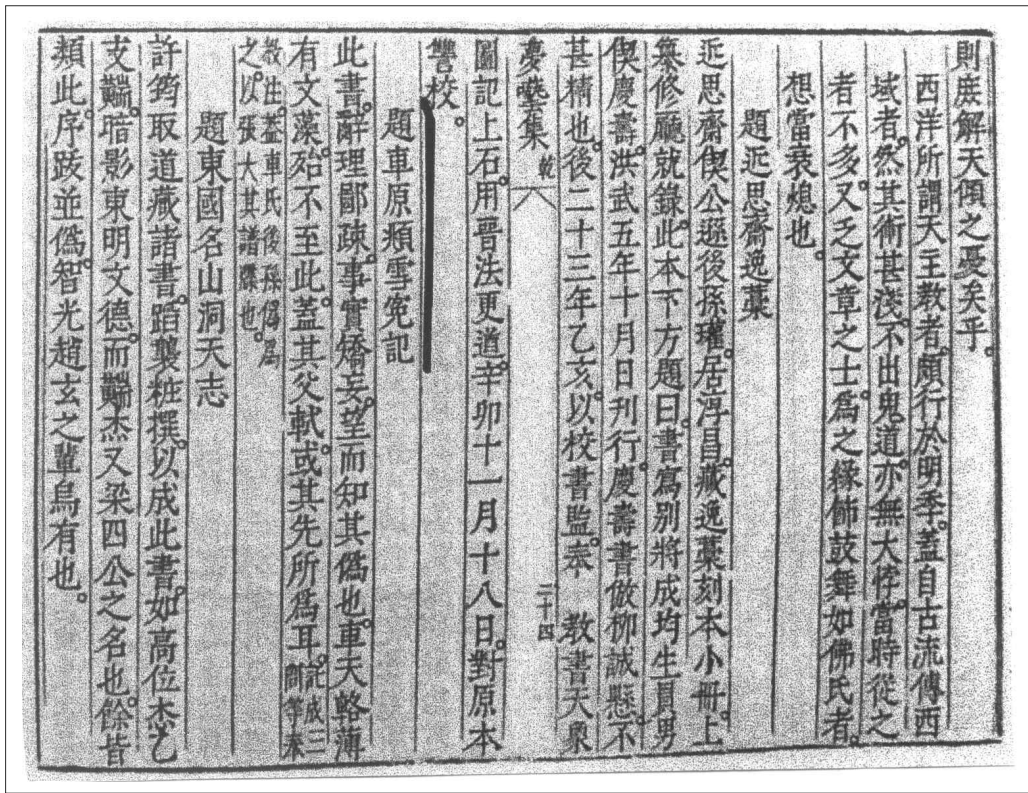 則庶解天傾之憂矣乎。
西洋所謂天主教者。頗行於明季。蓋自古流傳西
域者。然其術甚淺。不出鬼道。亦無大悖。當時從之
者不多。又乏文章之士。爲之緣飾鼓舞如佛氏者。
想當衰熄也。
題近思齋逸藁
近思齋偰公遜後孫瓘。居淳昌。藏逸藁刻本小冊。上
纂修廳就錄。此本下方題曰。書寫別將成均生員男
偰慶壽。洪武五年十月日刊行。慶壽書倣柳誠懸。不
甚精也。後二十三年乙亥。以校書監奉 教書天象
夢囈集 乾 二十四
圖記上石。用晋法更道。辛卯十一月十八日。對原本
讐校。
題車原頫雪寃記
此書。辭理鄙疎。事實矯妄。望而知其僞也。車天輅薄
有文藻。殆不至此。蓋其父軾。或其先所爲耳。記成三問等奉
敎註。蓋車氏後孫僞爲之。以張大其譜牒也。
題東國名山洞天志
許筠取道藏諸書。蹈襲粧撰。以成此書。如高位杰乙
支䶪。暗影東明文德。而䶪杰又梁四公之名也。餘皆
類此。序跋並僞。智光趙玄之輩烏有也。